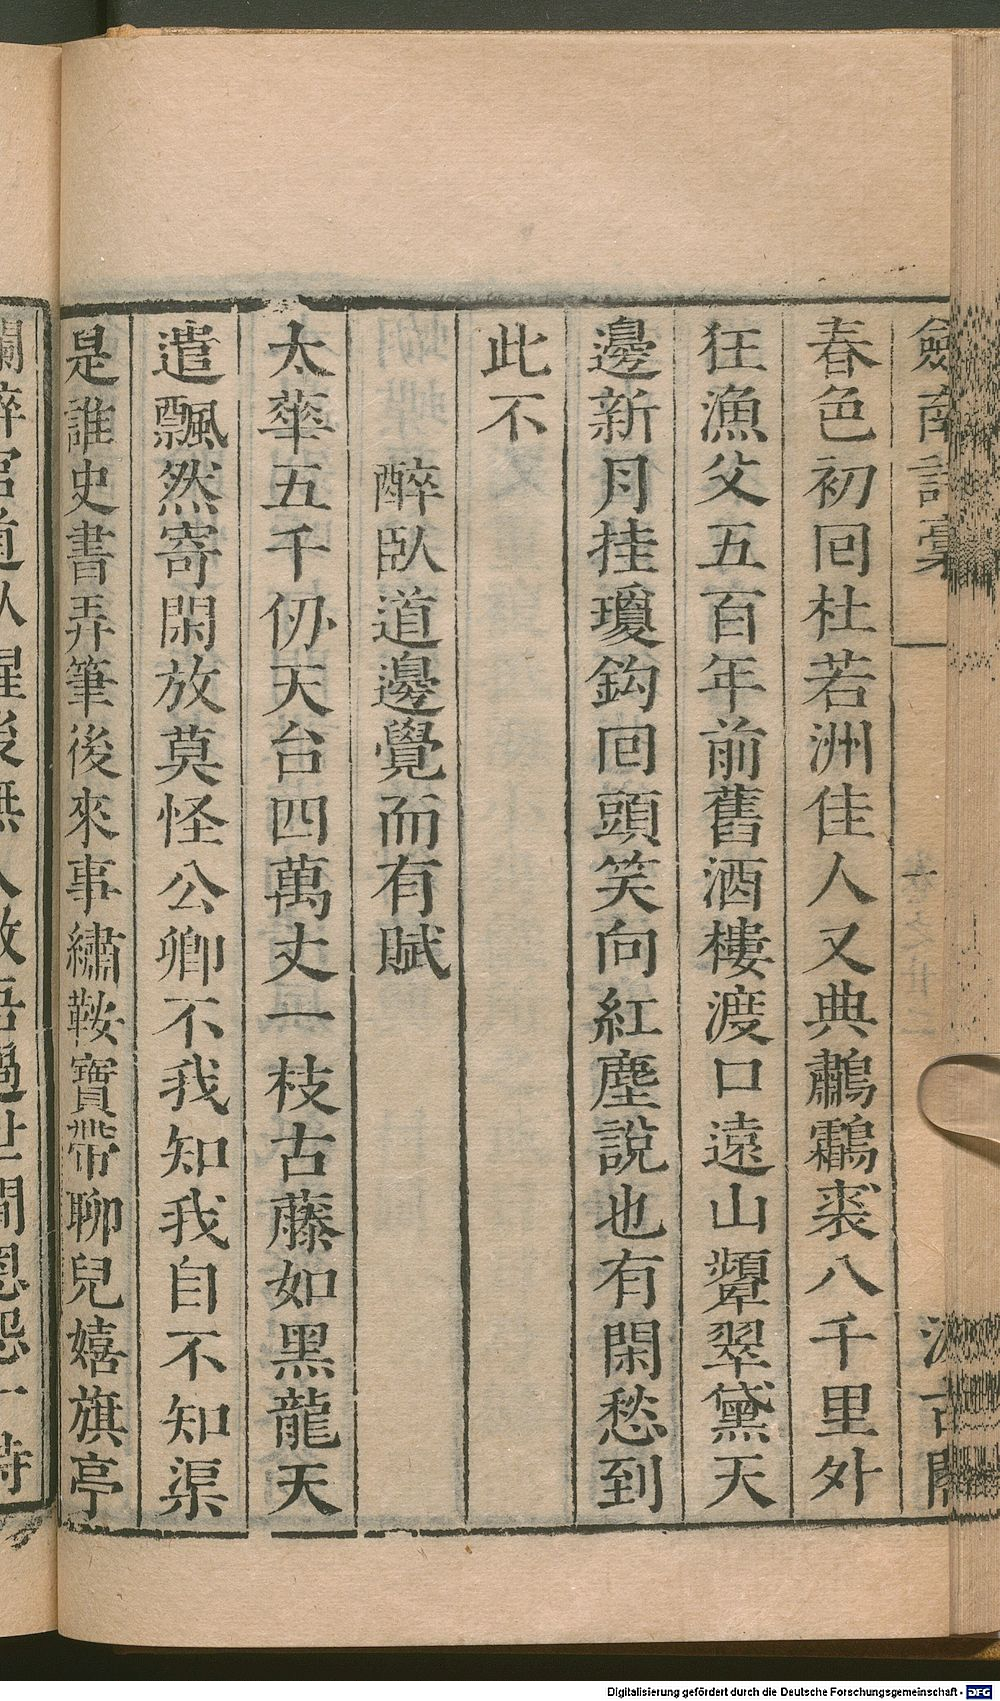 劍南詩稾
春色初回杜若洲佳人又典鷫鸘裘八千里外
狂漁父五百年前舊酒樓渡口遠山顰翠黛天
邊新月挂瓊鈎回頭笑向紅塵說也有閑愁到
此不
醉臥道邊覺而有賦
太華五千仞天台四萬丈一枝古藤如黑龍天
遣飄然寄閑放莫怪公卿不我知我自不知渠
是誰史書弄筆後來事繡鞍寶帶聊兒嬉旗亭
Digitalisierung gefördert durch die Deutsche Forschungsgemeinschaft - DFG